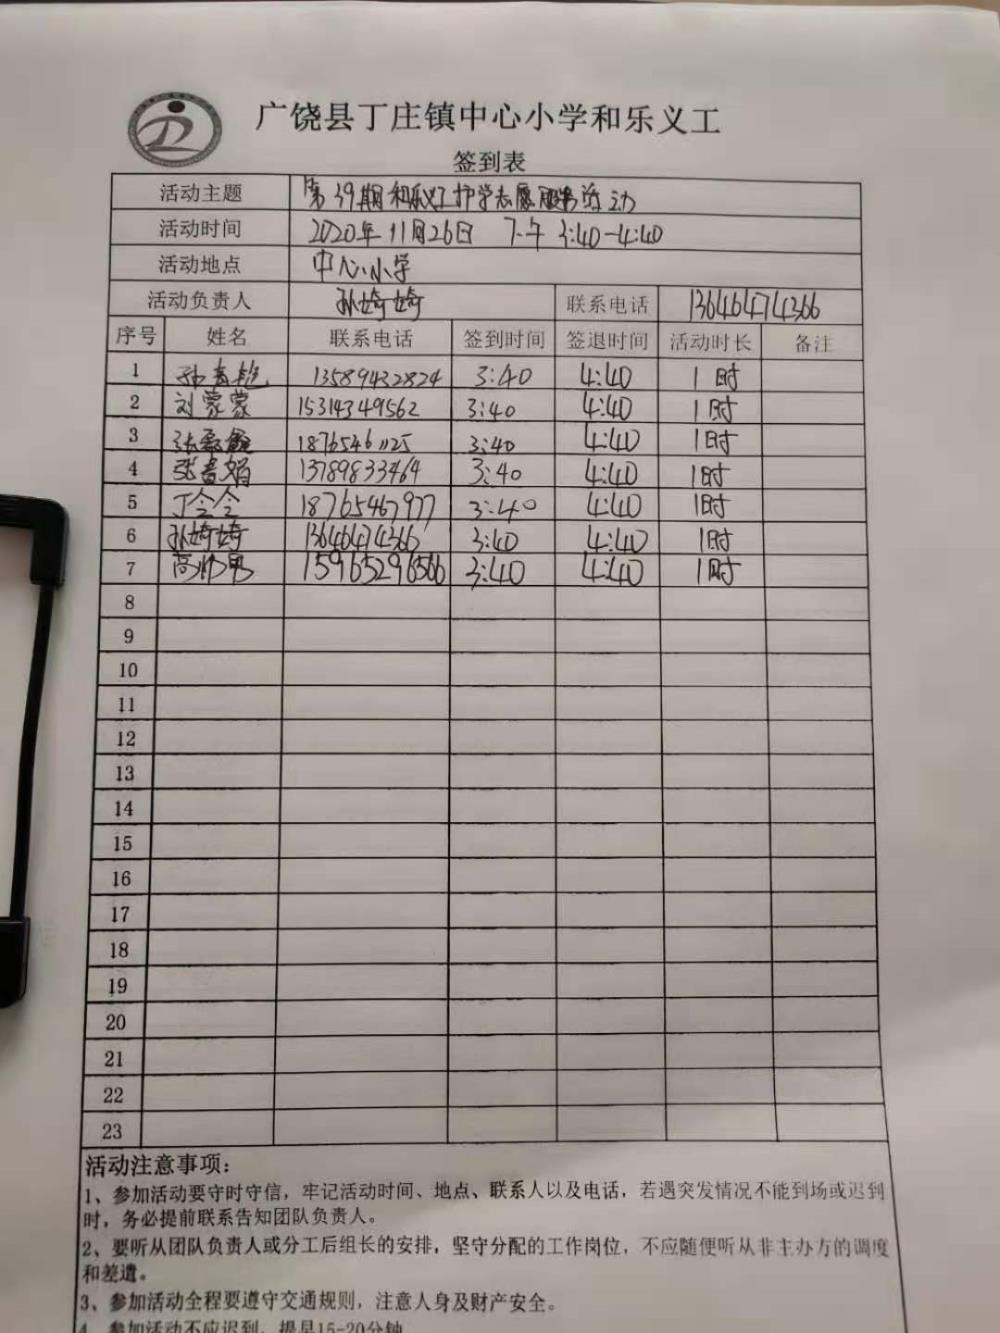 广饶县丁庄镇中心小学和乐义工
签到表
活动主题 第39期和乐义工护学志愿服务活动
活动时间 2020年11月26日 下午 3:40-4:40
活动地点 中心小学
活动负责人 孙婷婷 联系电话 13646474366
序号 姓名 联系电话 签到时间 签退时间 活动时长 备注
1 孙 13589432824 3:40 4:40 1时
2 刘蒙蒙 15314349562 3:40 4:40 1时
3 张 18765461125 3:40 4:40 1时
4 张 娟 13789833464 3:40 4:40 1时
5 丁令令 18765467977 3:40 4:40 1时
6 孙婷婷 13646474366 3:40 4:40 1时
7 高帅男 15965296566 3:40 4:40 1时
8
9
10
11
12
13
14
15
16
17
18
19
20
21
22
23
活动注意事项：
1、参加活动要守时守信，牢记活动时间、地点、联系人以及电话，若遇突发情况不能到场或迟到
时，务必提前联系告知团队负责人。
2、要听从团队负责人或分工后组长的安排，坚守分配的工作岗位，不应随便听从非主办方的调度
和差遣。
3、参加活动全程要遵守交通规则，注意人身及财产安全。
4、参加活动不应迟到，提早15-20分钟